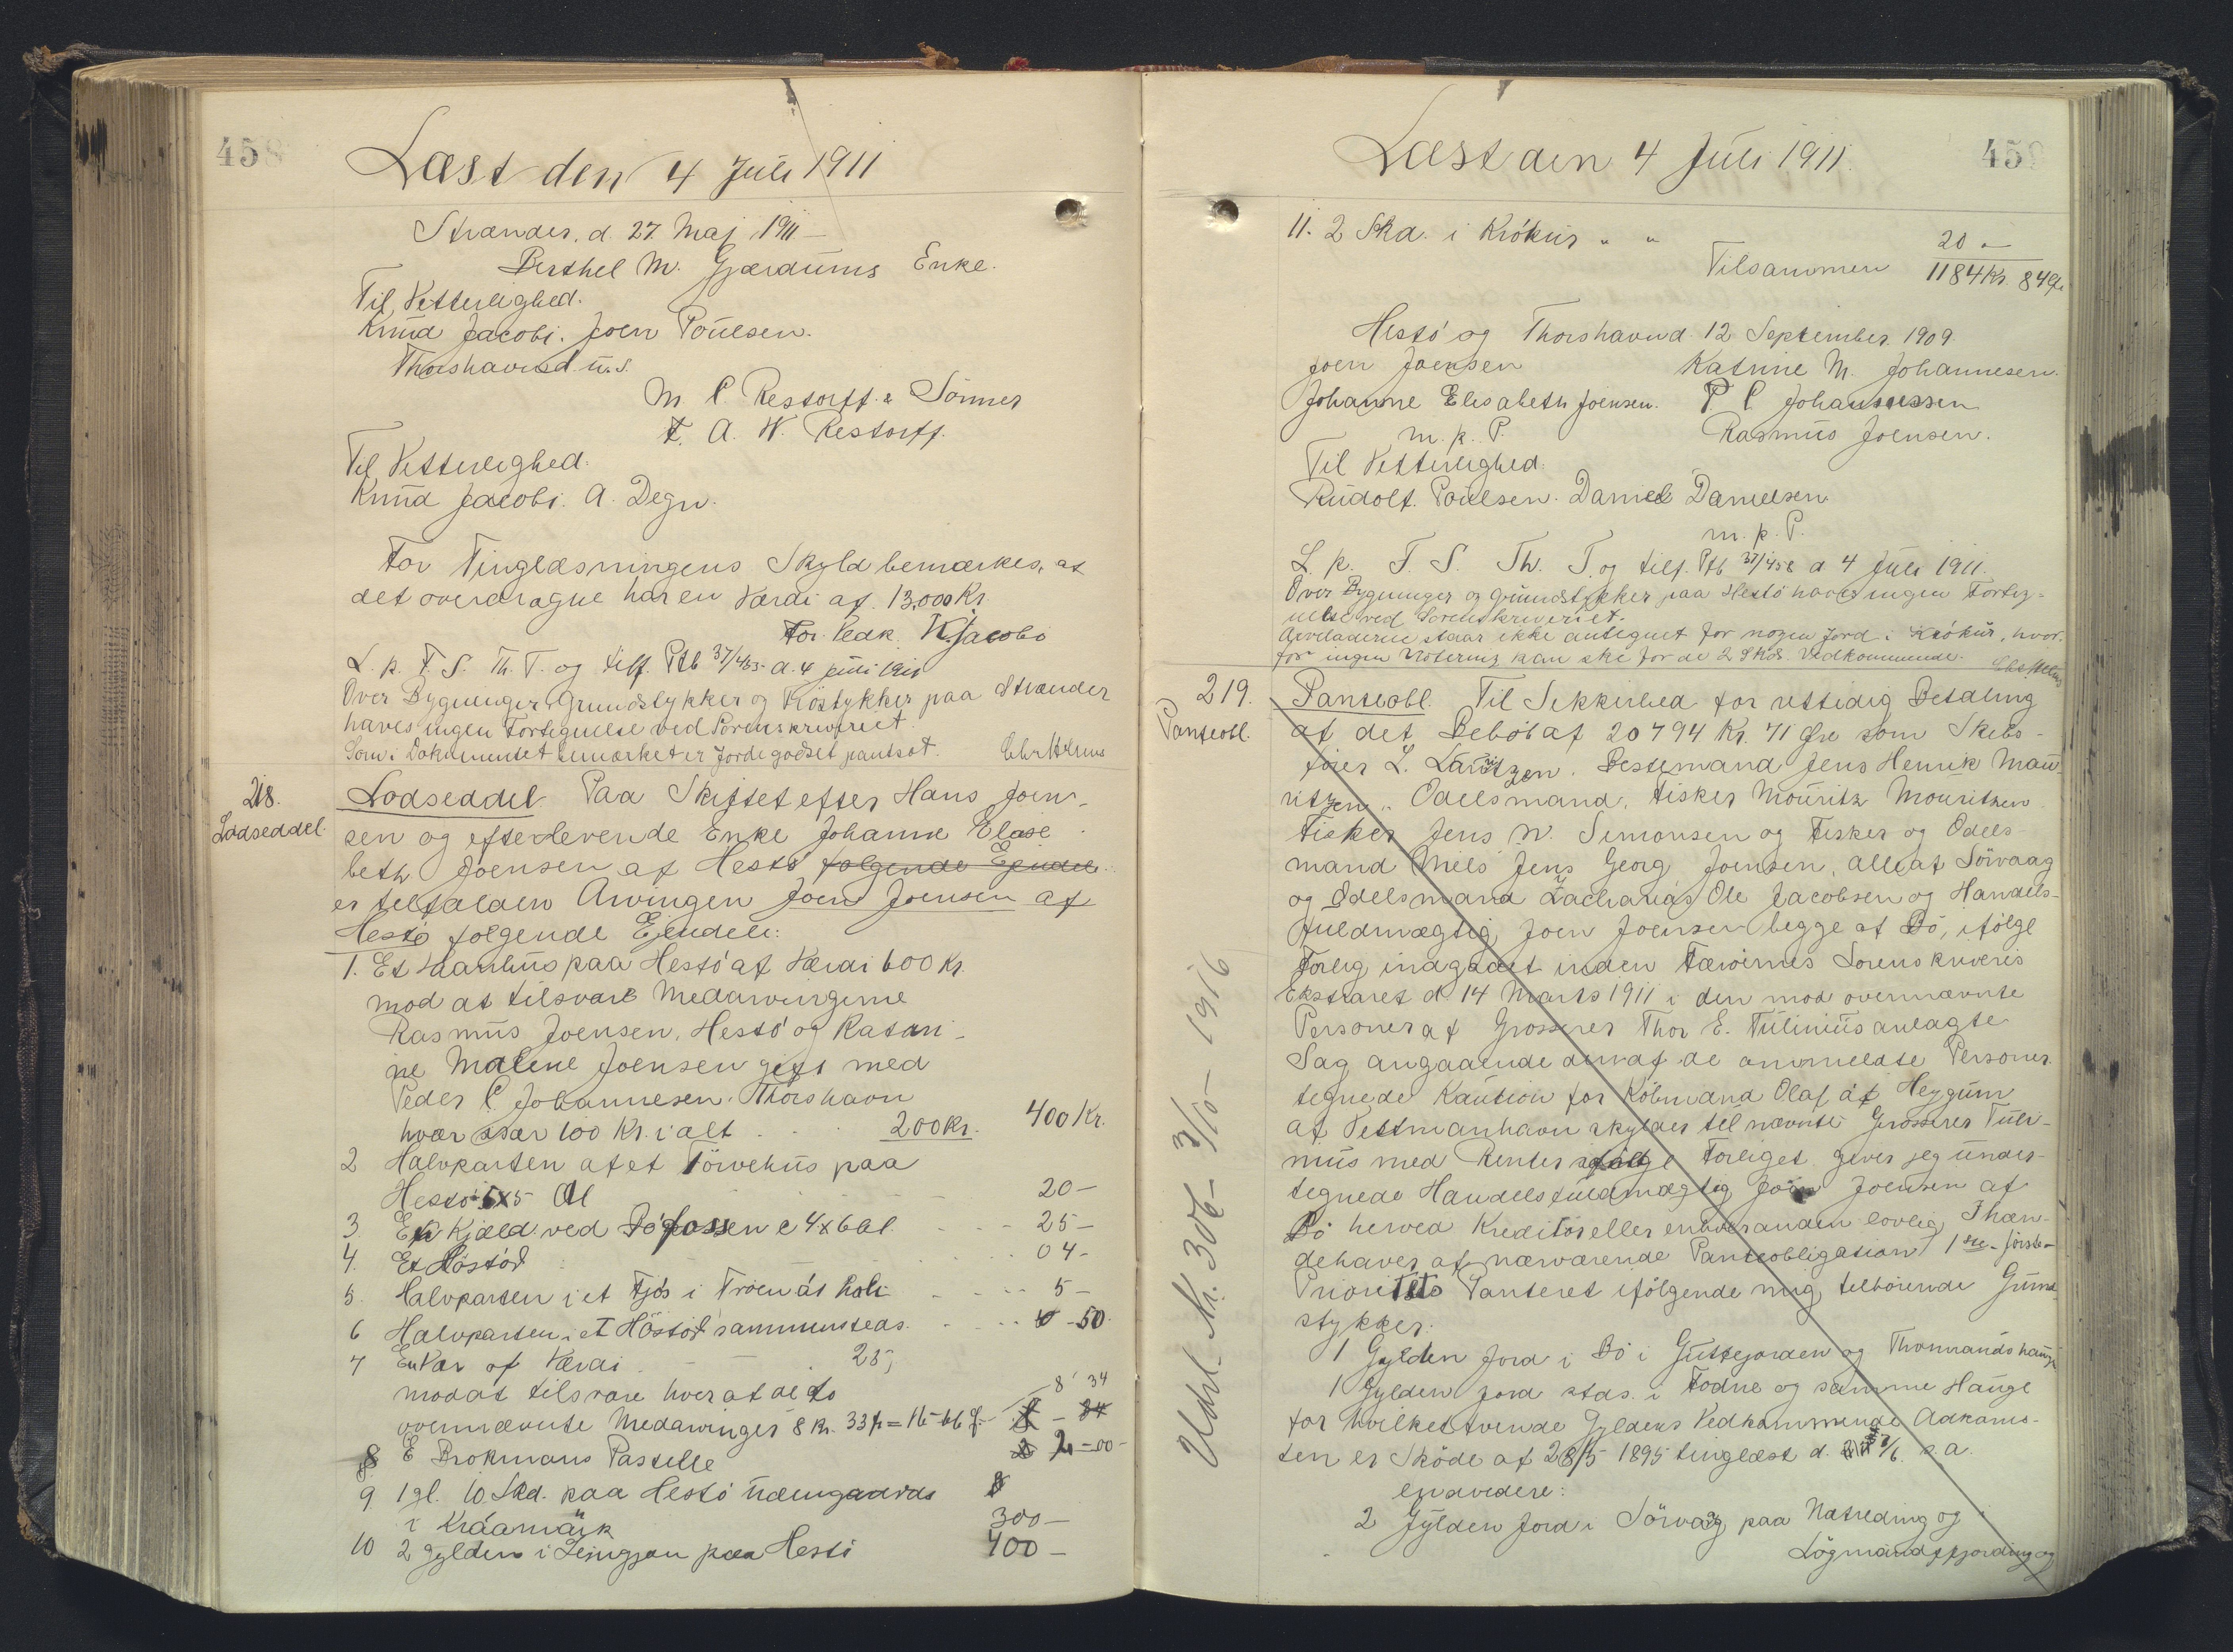 458
Læst den 4 Juli 1911
Strænder, d. 27 Maj 1911 —
Berthel M. Gjærdums Enke.
Til Vitterlighed.
Knud Jacobi. Joen Poulsen.
Thorshavn d. u. s.
M. C. Restorff & Sønner
F. A. W. Restorff.
Til Vitterlighed.
Knud Jacobi. A. Degn.
For Tinglæsningens Skyld bemærkes, at
det overdragne har en Værdi af 13,000 Kr.
For Vedk. K. Jacobi
L. p. F. S. Th. T. og tilf. Ptb 37/455 d. 4 Juli 1911
Over Bygninger, Grundstykker og Röstykker paa Strænder
haves ingen Fortegnelse ved Sorenskriveriet.
Som i Dokumentet bemærket er Jordegodset pantsat.
218.
Lodseddel.
Lodseddel. Paa Skiftet efter Hans Joen-
sen og efterlevende Enke Johanne Elisa-
beth Joensen af Hestö følgende Ejendele
er tilfalden Arvingen Joen Joensen af
Hestö følgende Ejendele:
1. Et Vaanhus paa Hestö af Værdi 600 Kr.
mod at tilsvare Medarvingerne
Rasmus Joensen, Hestö og Katri-
ne Malene Joensen gift med
Peder C. Johannesen. Thorshavn
hver især 100 Kr. i alt . . . 200 Kr. 400 Kr.
2 Halvparten af et Törvehus paa
Hestö 5x5 Al 20 —
3 En Kjæld ved Böfossen 4x6 al. . . . 25 —
4. Et Höstöd . . . 04 -
5. Halvparten i et Fjós i Troen á Holi . . . 5 —
6 Halvparten i et Höstöd sammensteds. . . . 0 - 50.
7 En Kar af Værdi . . . 25,
mod at tilsvare hver af de to
ovennævnte Medarvinger 8 Kr. 33 ⅓ = 16-66 ⅔ 8 34
8 E Brokmans Pastelle 2 — 00 —
9 1 gl. 10 Skd. paa Hestö Udengaards
i Kráamörk 300 —
10 2 Gylden i Lejngjan paa Hestö 400 —
459
Læst den 4 Juli 1911.
11. 2 Skd. i Krókur " " 20 —
Tilsammen 1184 Kr. 84 Ø.
Hestö og Thorshavn d. 12 September 1909.
Joen Joensen Katrine M. Johannesen.
Johanne Elisabeth Joensen. P. C. Johannessen
m. p. P. Rasmus Joensen.
Til Vitterlighed.
Rudolf Poulsen. Daniel Danielsen
m. p. P.
L. p. F. S. Th. T. og tilf. Ptb 37/458 d 4 Juli 1911.
Over Bygninger og Grundstykker paa Hestö haves ingen Forteg-
nelse ved Sorenskriveriet.
Arveladerne staar ikke antegnet for nogen Jord i Krókur, hvor-
for ingen Notering kan ske for de 2 Skd. Vedkommende.
219.
Panteobl.
Panteobl. Til Sikkerhed for rettidig Betaling
af det Beløb af 20794 Kr. 71 Øre som Skibs-
fører L. Lauritzen. Bestemand Jens Henrik Mau-
ritzen, Odelsmand, Fisker Mouritz Mouritzen
Fisker Jens N. Simonsen og Fisker og Odels-
mand Niels Jens Georg Joensen, alle af Sörvaag
og Odelsmand Zacharias Ole Jacobsen og Handels-
fuldmægtig Joen Joensen begge af Bö, ifölge
Forlig indgaaet inden Færöernes Sorenskriveris
Ekstraret d. 14 Marts 1911 i den mod ovennævnte
Personer af Grosserer Thor E. Tulinius anlagte
Sag angaaende den af de ommeldte Personer
tegnede Kaution for Köbmand Olaf á Heygum
af Vestmanhavn skylder til nævnte Grosserer Tuli-
nius med Renter ifölge Forliget giver jeg under-
tegnede Handelsfuldmægtig Joen Joensen af
Bö herved Kreditor eller enhver anden lovlig Ihæn-
dehaver af nærværende Panteobligation 1ste — förste —
Prioritets Panteret i følgende mig tilhörende Grund-
stykker.
1 Gylden Jord i Bö i Guttejorden og Thorunnds hauge
1 Gylden Jord stds. i Todne og samme Hauge
for hvilke tvende Gyldens Vedkommende Adkoms-
ten er Sköde af 28/5 1895 tinglæst d. 7/6 s. a.
endvidere:
2 Gylden Jord i Sörvaag paa Natreding og
Lögmandsfjording og
Udsl. Nr. 306 — 3/10 — 1916